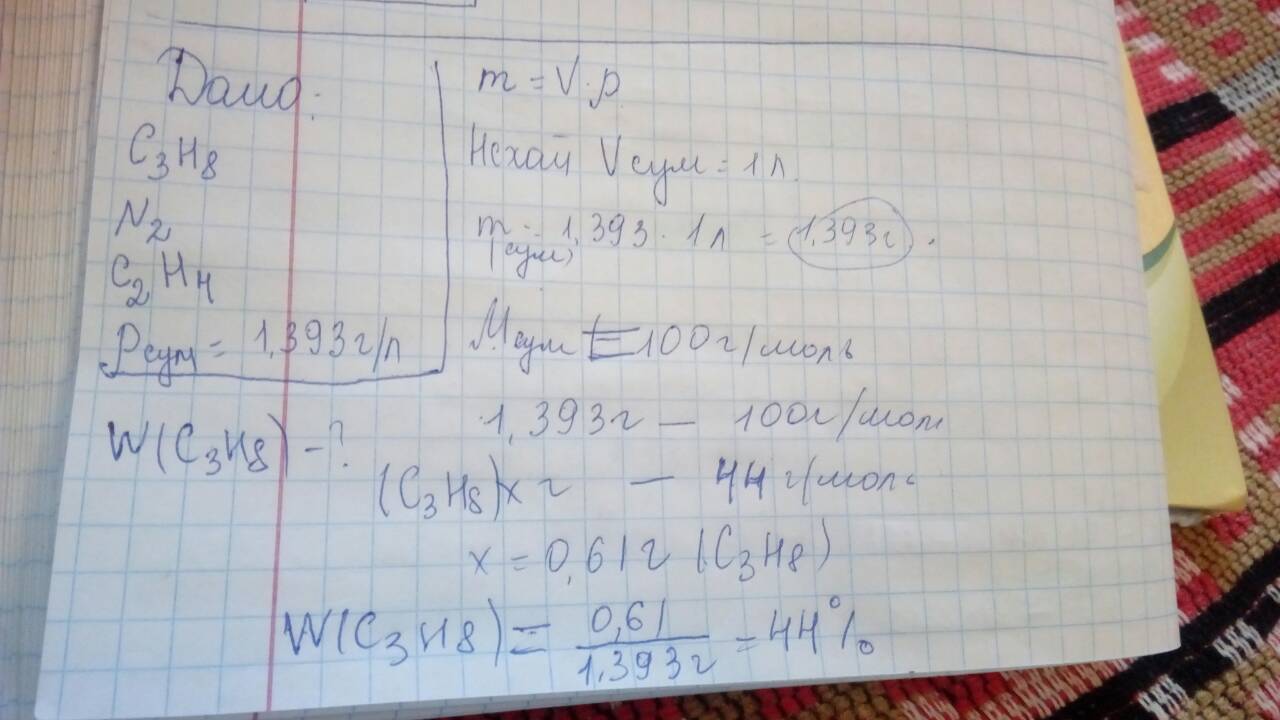 Дано:
C₃H₈
N₂
C₂H₄
ρсум = 1,393г/л
W(C₃H₈) - ?
m = V·ρ.
Нехай Vсум = 1л.
m(сум) = 1,393 · 1л = 1,393г.
Mсум = 100г/моль
1,393г — 100г/моль
(C₃H₈) x г — 44 г/моль
x = 0,61г (C₃H₈)
W(C₃H₈) = 0,61 / 1,393г = 44%